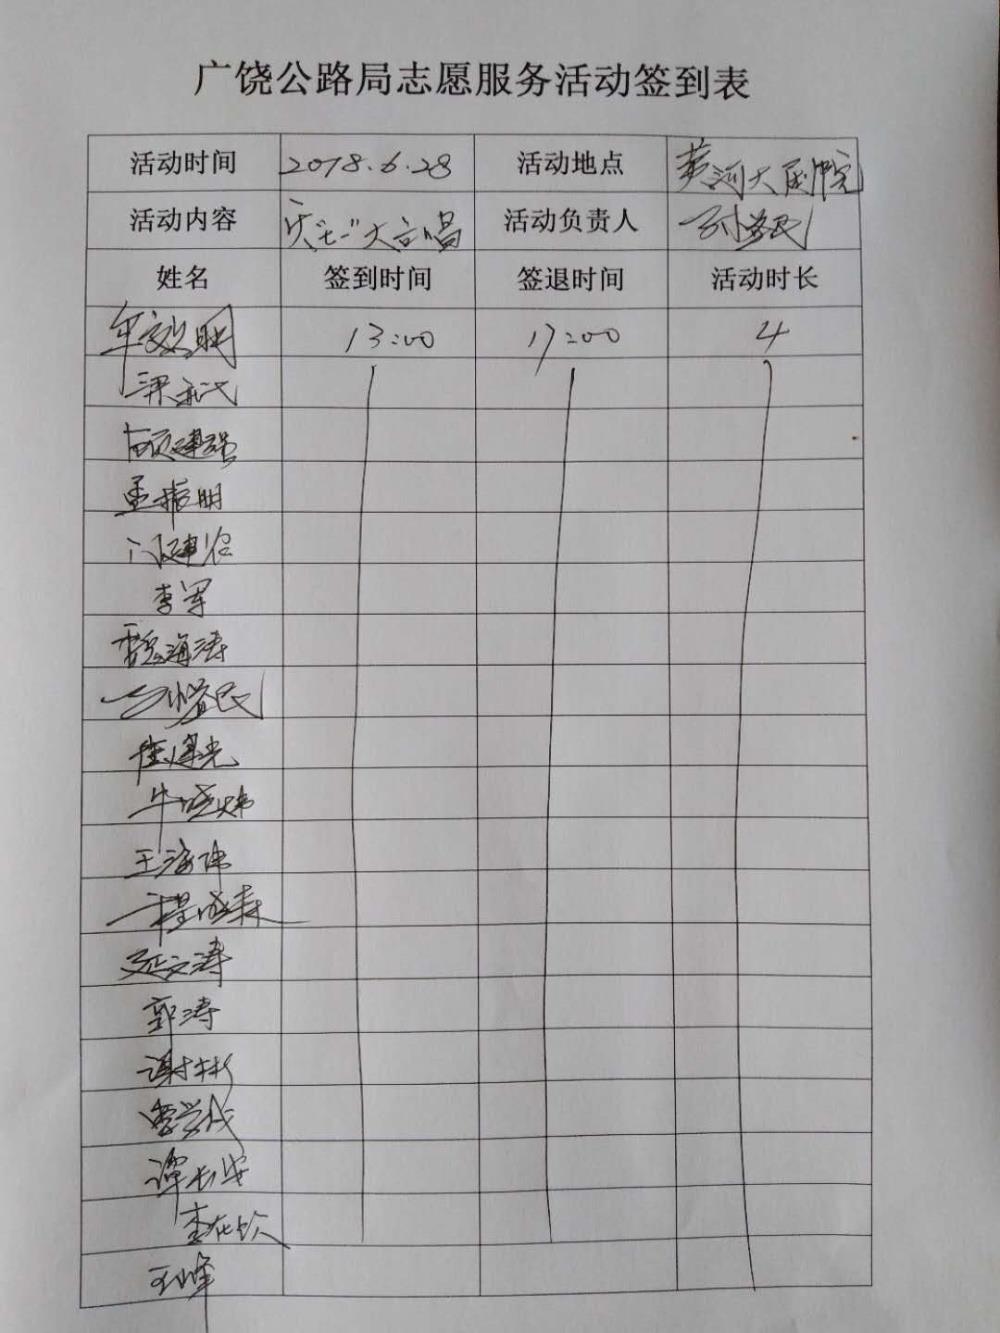 广饶公路局志愿服务活动签到表
活动时间 2018.6.28 活动地点 黄河大剧院
活动内容 庆"七一"大合唱 活动负责人 孙益民
姓名 签到时间 签退时间 活动时长
年效明 13:00 17:00 4
梁
顾建强
孟振明
建
李军
魏海涛
孙益民
崔建光
牛晓炜
王海伟
程成森
延文涛
郭涛
谢林彬
李学成
谭长安
李在钦
王峰